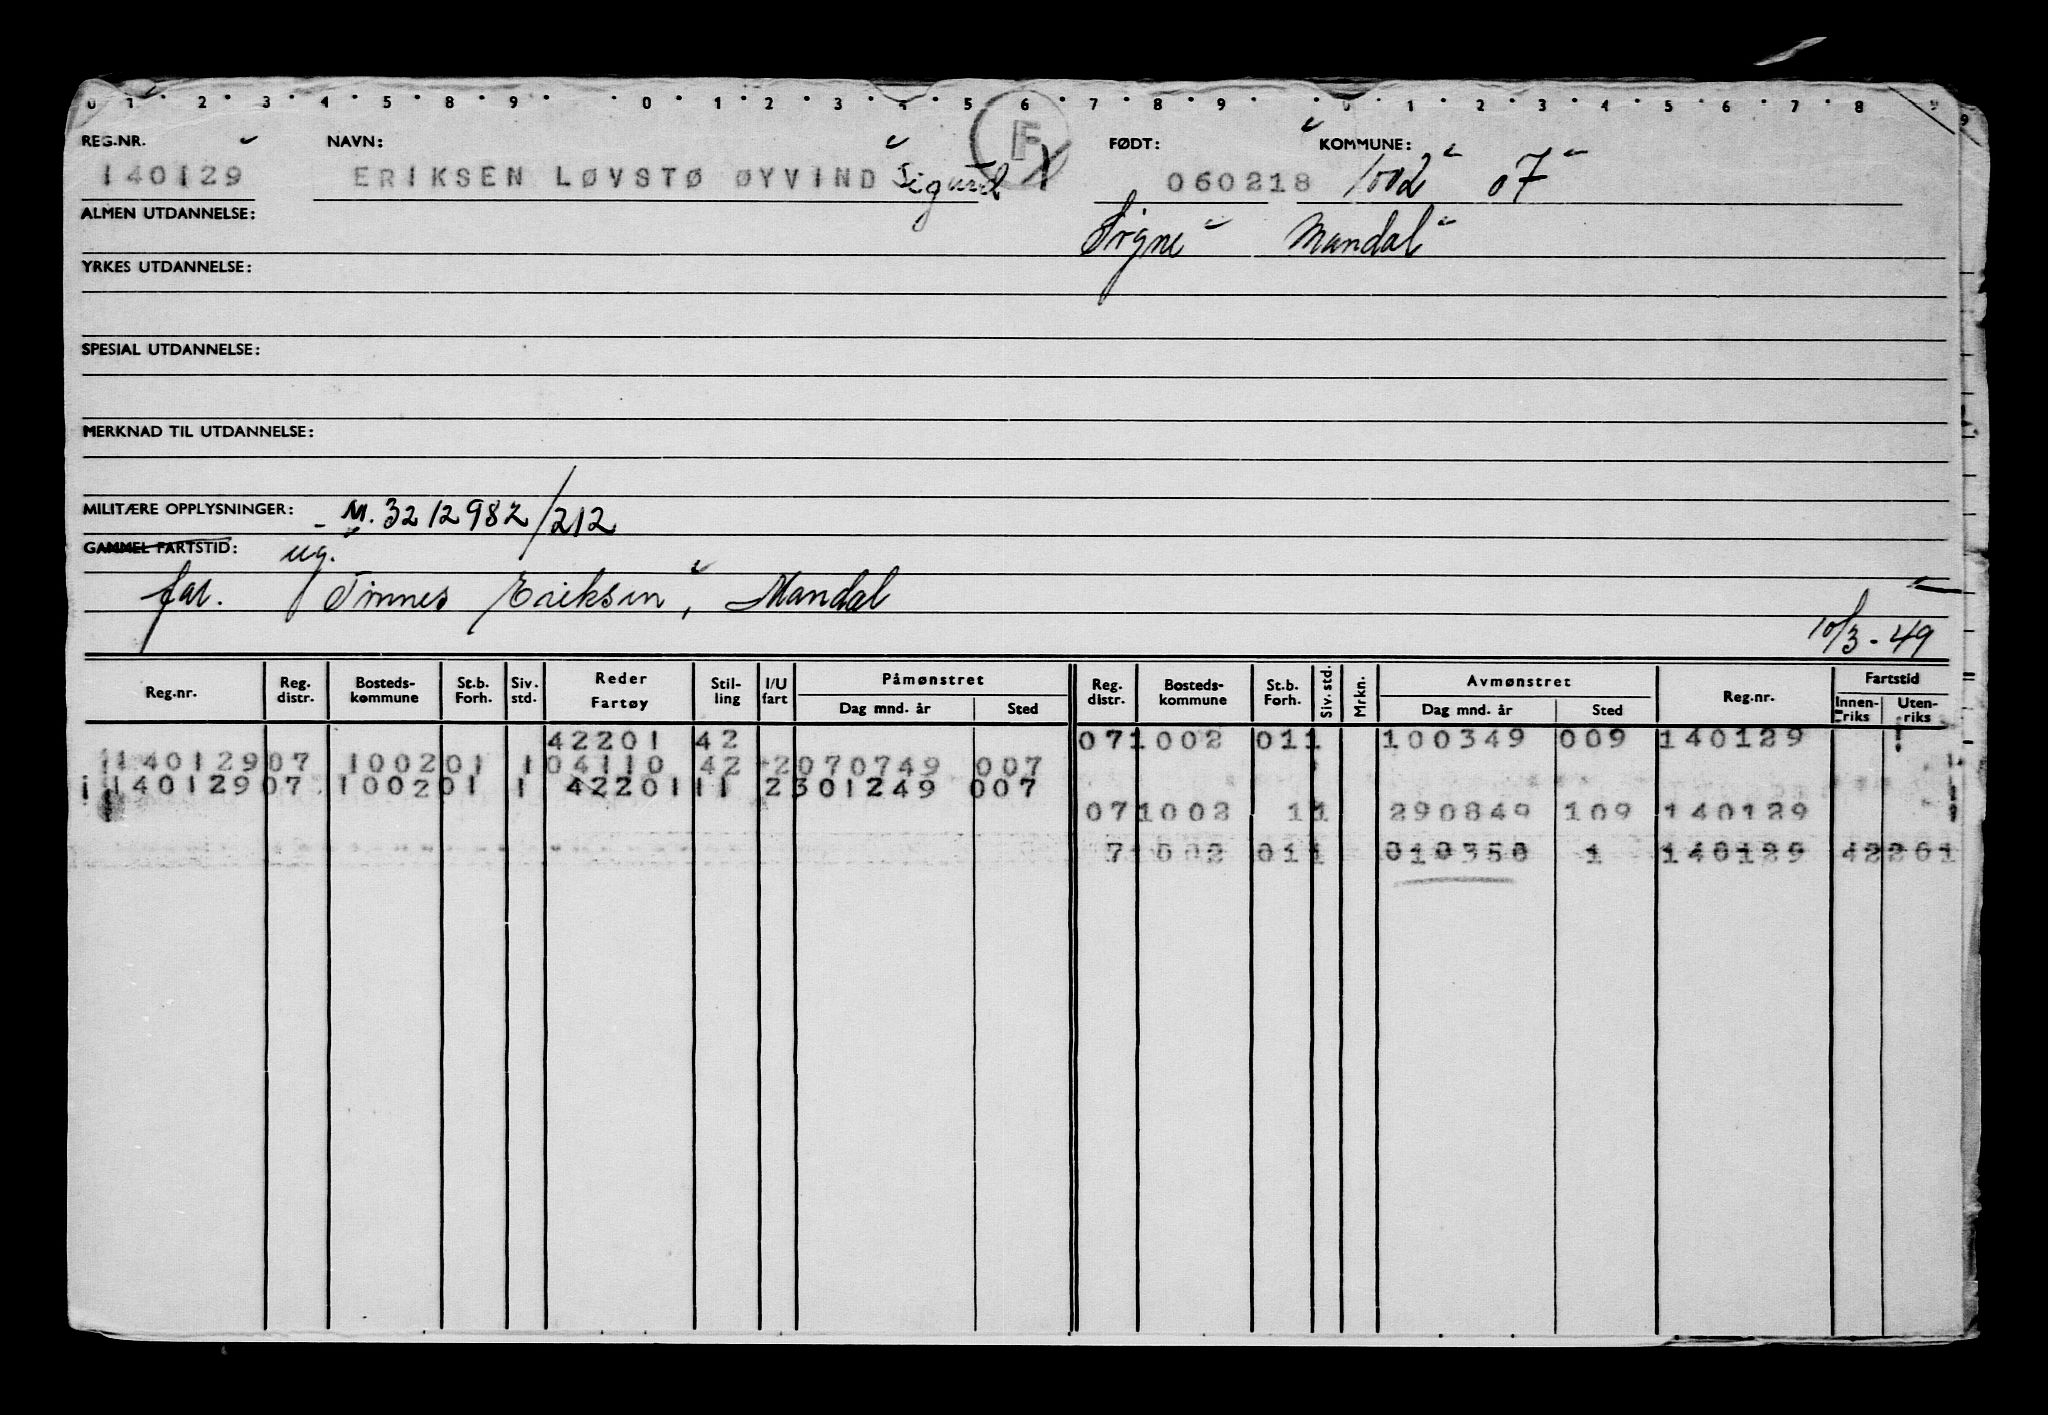 0 1 2 3 4 5 8 9 0 1 2 3 4 5 6 7 8 9 0 1 2 3 4 5 6 7 8 9
REG.NR. NAVN: F FØDT: KOMMUNE:
140129 ERIKSEN LØVSTØ ØYVIND Sigurd 060218 1002 07
ALMEN UTDANNELSE: Mandal
YRKES UTDANNELSE:
SPESIAL UTDANNELSE:
MERKNAD TIL UTDANNELSE:
MILITÆRE OPPLYSNINGER: - M. 3212982/212
GAMMEL FARTSTID: ug.
far. Tønnes Eriksen, Mandal
10/3-49
Reg.nr. Reg. distr. Bosteds- kommune St.b. Forh. Siv. std. Reder Fartøy Stil- ling I/U fart Påmønstret Dag mnd. år Sted Reg. distr. Bosteds- kommune St.b. Forh. Siv. std. Mrkn. Avmønstret Dag mnd. år Sted Reg.nr. Fartstid Innen- riks Uten- riks
42201 42 07 1002 01 1 100349 009 140129
140129 07 1002 01 1 04110 42 2 070749 007
140129 07 1002 01 1 42201 11 2 301249 007
07 1002 1 1 290849 109 140129
7 002 01 1 010350 1 140129 42201